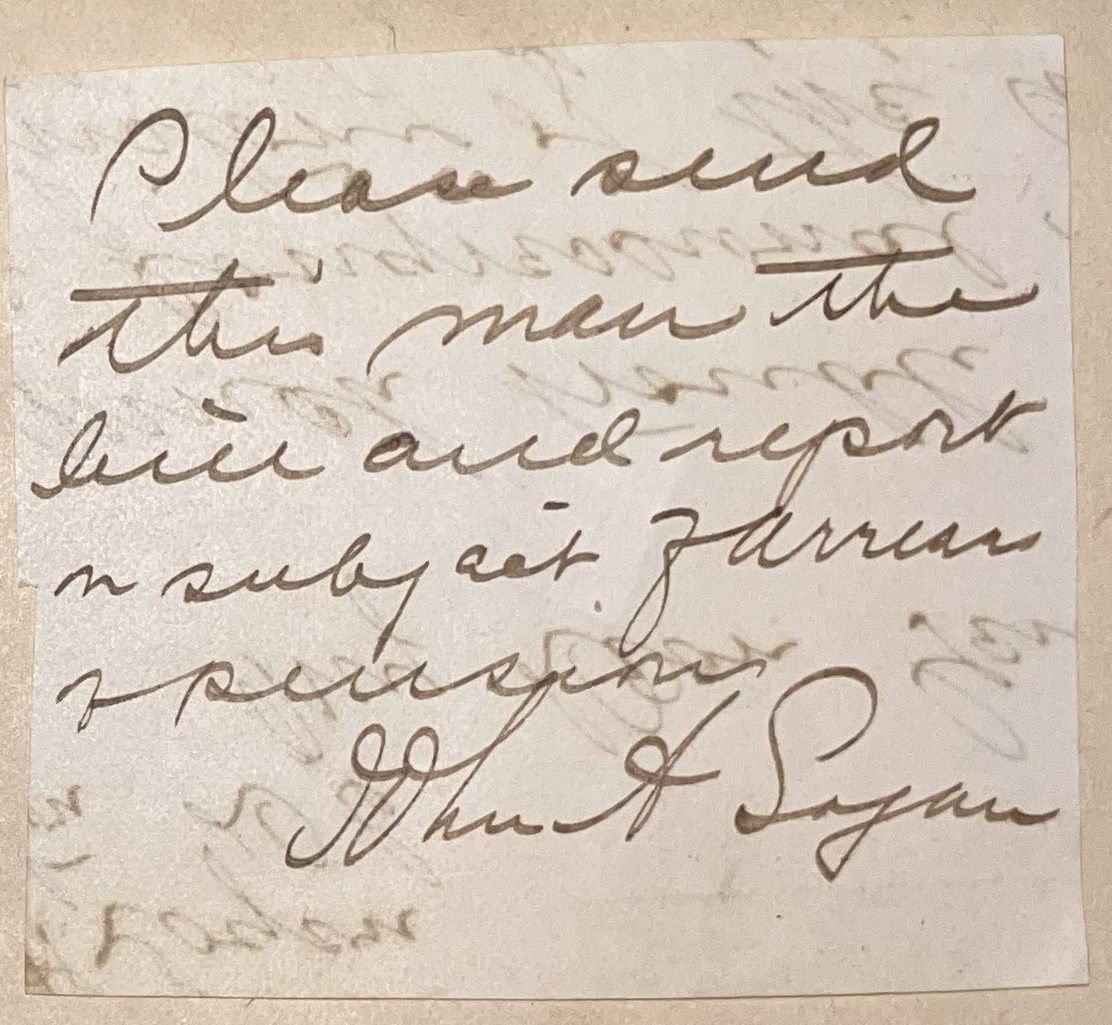 Please send
this man the
bill and report
on subject of Arrears
of pension
John A Logan